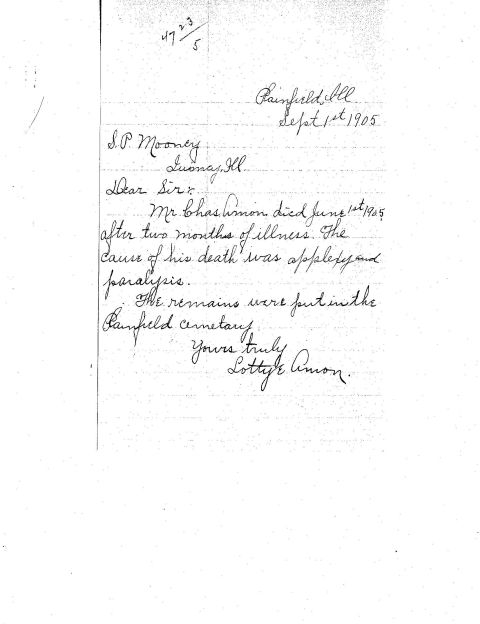 47 23/5
Plainfield, Ill.
Sept 1st 1905
S.P. Mooney
Ill.
Dear Sir:
Mr Chas. Amon died June 1st 1905
after two months of illness. The
cause of his death was applexy and
paralysis.
The remains were put in the
Plainfield cemetary
Yours truly
Lotty E Amon.